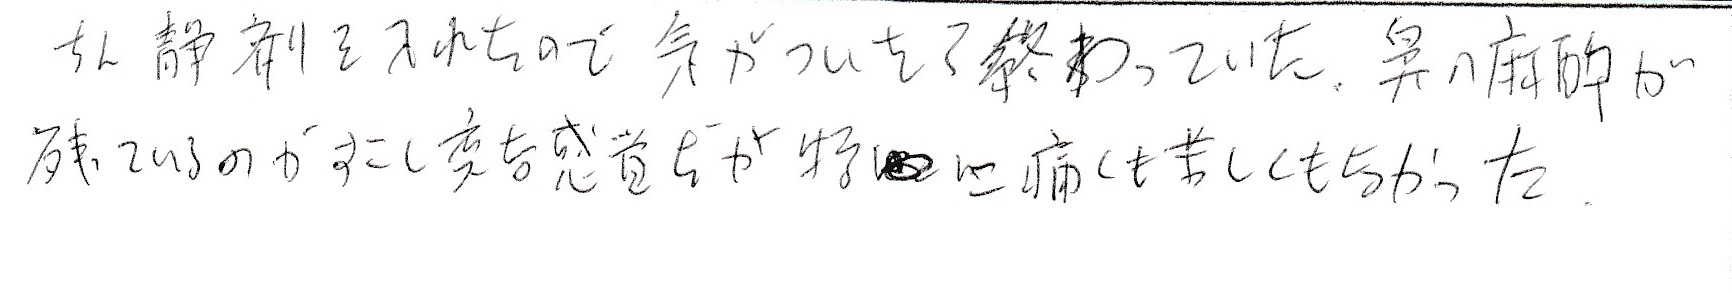 ちん静剤を入れたので気がついたら終わっていた。鼻の麻酔が
残っているのがすこし変な感覚だが特に痛くも苦しくもなかった。